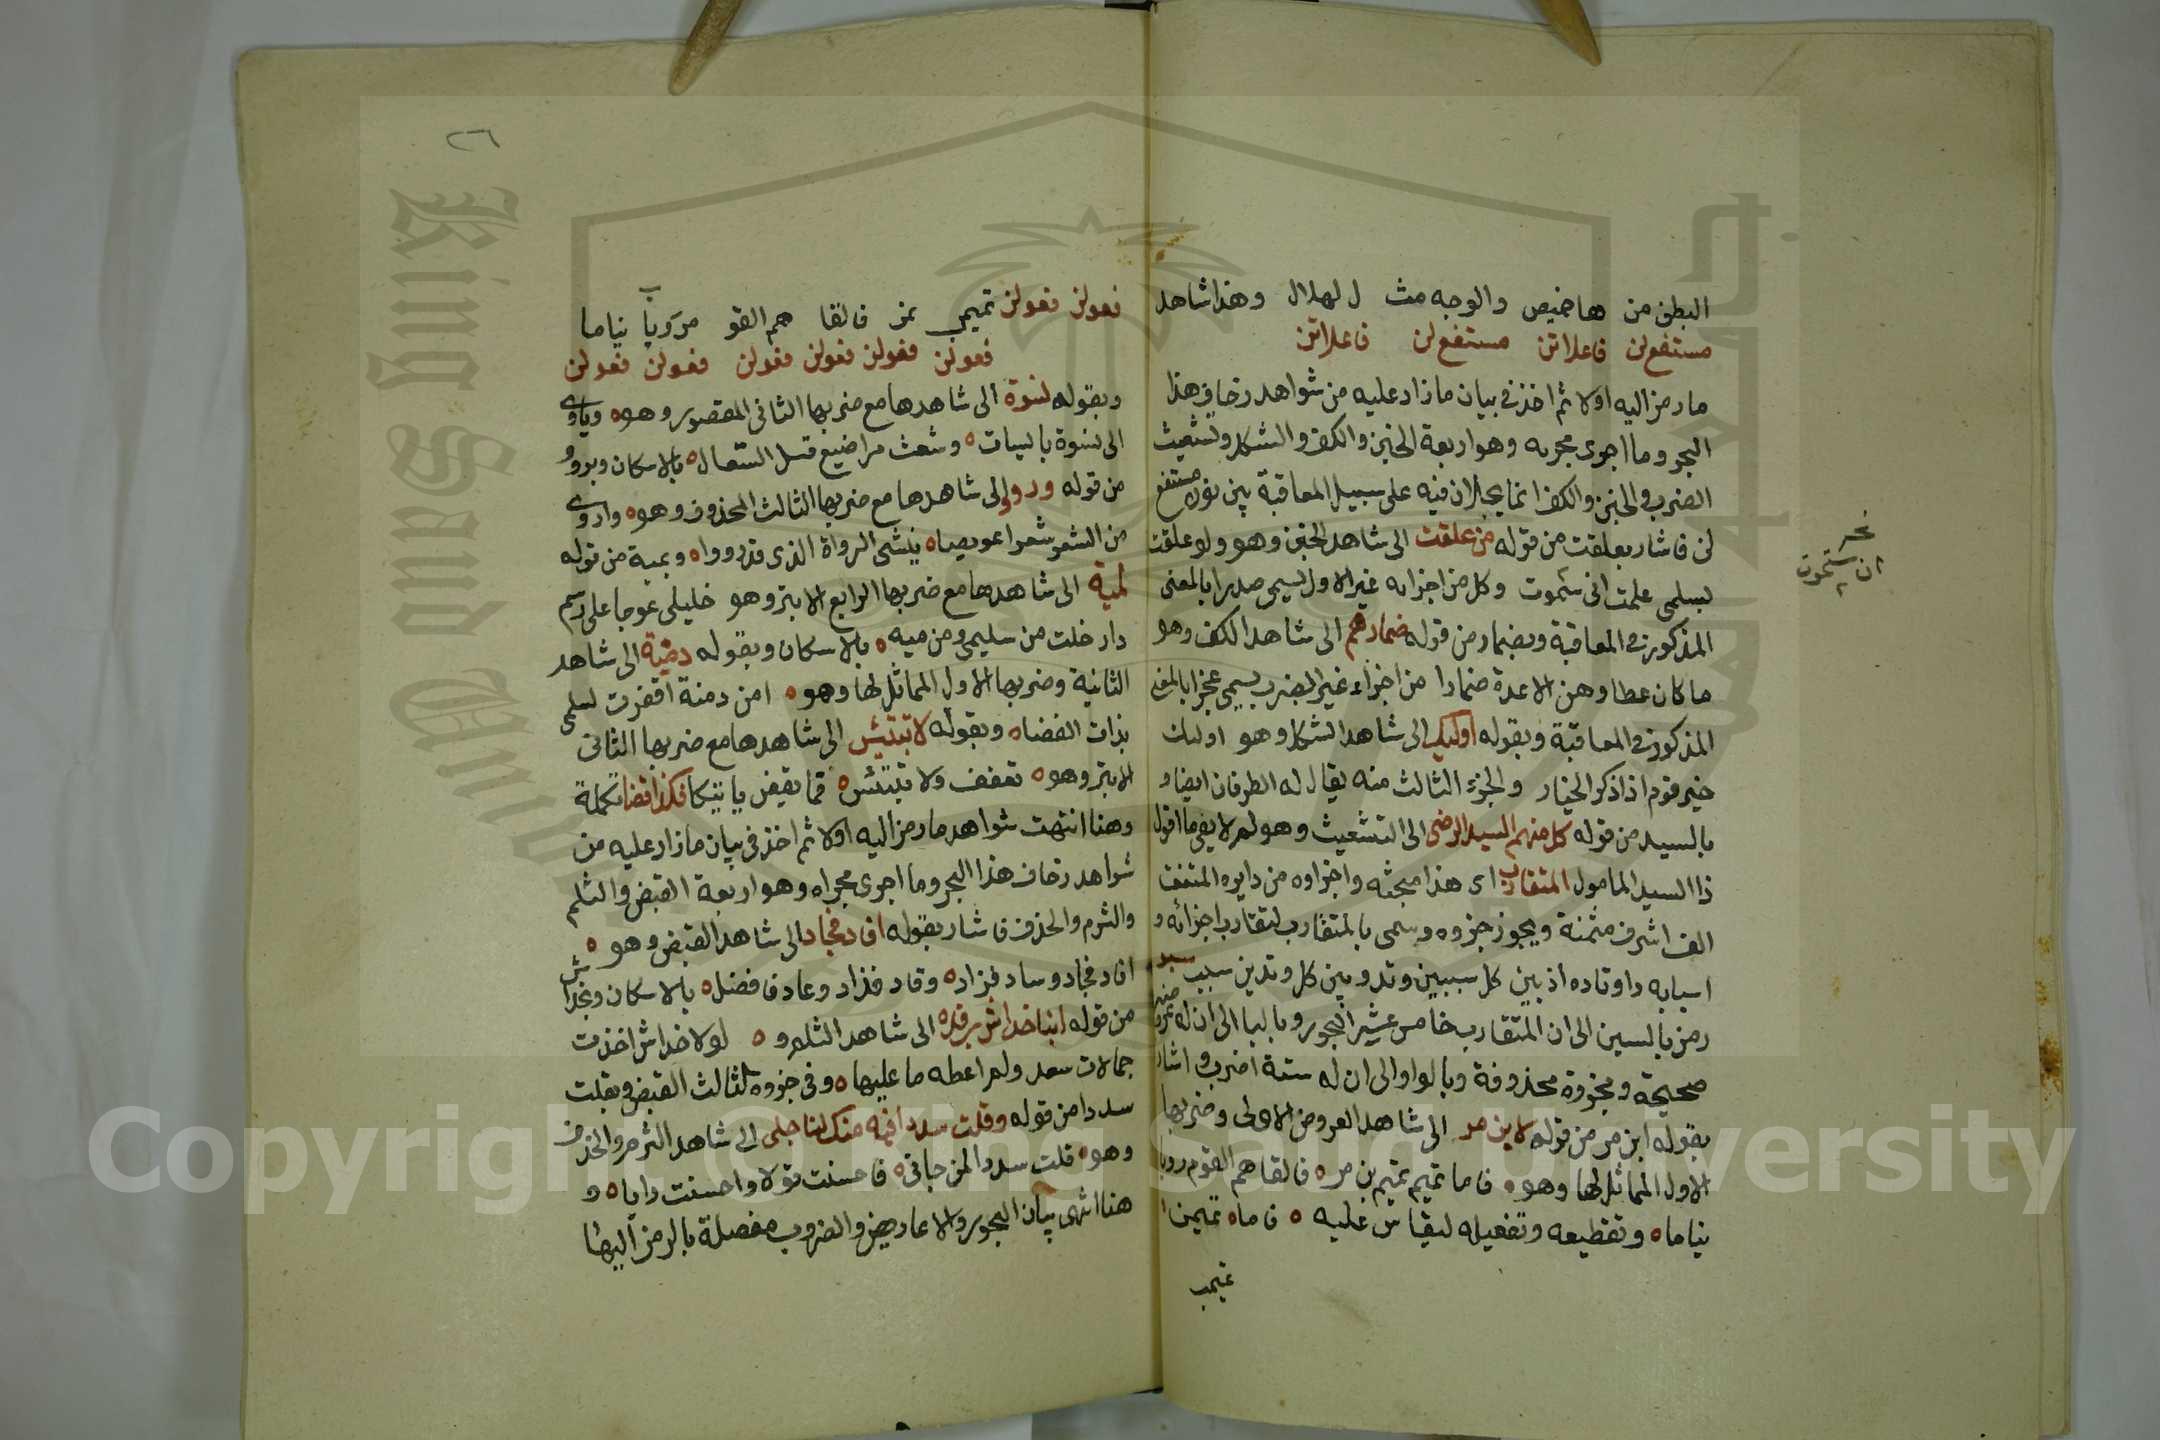 البطن من هاخميص والوجه مث ل لهلال وهذا شاهد
مستفع لن فاعلاتن مستفع لن فاعلاتن
ما رمز اليه اولا ثم اخذ في بيان ما زاد عليه من شواهد زحاف هذا
البحر وما اجرى مجراه وهو اربعة الخبن والكف والشكل وتشعيث
الضرب والخبن والكف انما يحلان فيه على سبيل المعاقبة بين نون مستفع
لن فاشار بعلقت من قوله من علقت الى شاهد الخبن وهو ولو علقت
بسلمى علمت انى ستموت وكل من اجزايه غير الاول يسمى صدرا بالمعنى
المذكور في المعاقبة وبضمار من قوله ضمارهم الى شاهد الكف وهو
ما كان عطاوهن الاعدة ضمارا من اجزاء غير الضرب يسمى عجزا بالمعنى
المذكور في المعاقبة وبقوله اوليك الى شاهد الشكل وهو اوليك
خير قوم اذا ذكر الخيار والجزء الثالث منه يقال له الطرفان ايضا و
بالسيد من قوله كل منهم السيد الرضى الى التشعيث وهو لم لا يفى ما اقول
ذا السيد المامول المتقارب اى هذا مبحثه واجزاوه من دايره المتفق
الف اشرف مثمنة ويجوز جزوه وسمى بالمتقارب لتقارب اجزائه و
اسبابه واوتاده اذ بين كل سببين وتد وبين كل وتدين سبب سبد
رمز بالسين الى ان المتقارب خامس عشر البحور وبالبا الى ان له عروضين
صحيحة ومجزوة محذوفة وبالواو الى ان له ستة اضرب واشار
بقوله ابن مر من قوله لابن مر الى شاهد العروض الاولى وضربها
الاول المماثل لها وهو فاما تميم تميم بن مر فالقاهم القوم روبا
نياما وتقطيعه وتفعيله ليقاس عليه فاما تميمن
تميمب
ان ستموت
٢٦
فعولن فعولن تميمب نمر فالقا هم القو مروبا نياما
فعولن فعولن فعولن فعولن فعولن فعولن
وبقوله لنسوة الى شاهدها مع ضربها الثانى المقصور وهو وياوى
الى نسوة بايسات وشعث مراضيع مثل السعال بالاسكان وبرووا
من قوله ورووا الى شاهدها مع ضربها الثالث المحذوف وهو واروى
من الشعر شعرا عويصا ينسى الرواة الذى قد رووا وبمية من قوله
لمية الى شاهدها مع ضربها الرابع الابتر وهو خليلى عوجا على رسم
دار خلت من سليمى ومن ميه بالاسكان وبقوله دمنة الى شاهد
الثانية وضربها الاول المماثل لها وهو امن دمنة اقفرت لسلمى
بذات الغضا وبقوله لا تبتئس الى شاهدها مع ضربها الثانى
الابتر وهو تعفف ولا تبتئس فما يقض ياتيكا فكذا قضا تكملة
وهنا انتهت شواهد ما رمز اليه اولا ثم اخذ في بيان ما زاد عليه من
شواهد زحاف هذا البحر وما اجرى مجراه وهو اربعة القبض والثلم
والثرم والحذف فاشار بقوله افاد فجاد الى شاهد القبض وهو
افاد فجاد وساد فزاد وقاد فذاد وعاد فافضل بالاسكان وبخداش
من قوله ابنا خداش برفده الى شاهد الثلم و لولا خداش اخذت
جمالات سعد ولم اعطه ما عليها وفى جزوه الثالث القبض وبقلت
سددا من قوله وقلت سددا فيه منك لنا جلى الى شاهد الثرم والحذف
وهو قلت سددا لمن جانى فاحسنت قولا واحسنت رايا و
هنا انتهى بيان البحور والاعاريض والضروب مفصلة بالرمز اليها